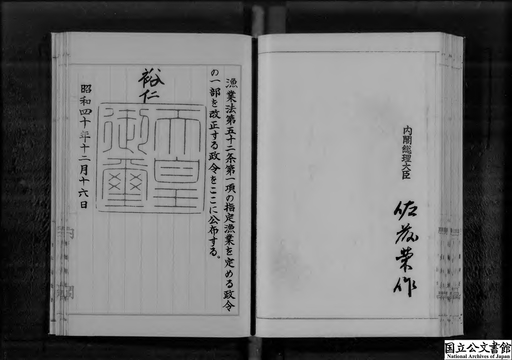 漁業法第五十二条第一項の指定漁業を定める政令
の一部を改正する政令をここに公布する。
裕仁
天皇
御璽
昭和四十年十二月十六日
内閣総理大臣
佐藤栄作
国立公文書館
National Archives of Japan